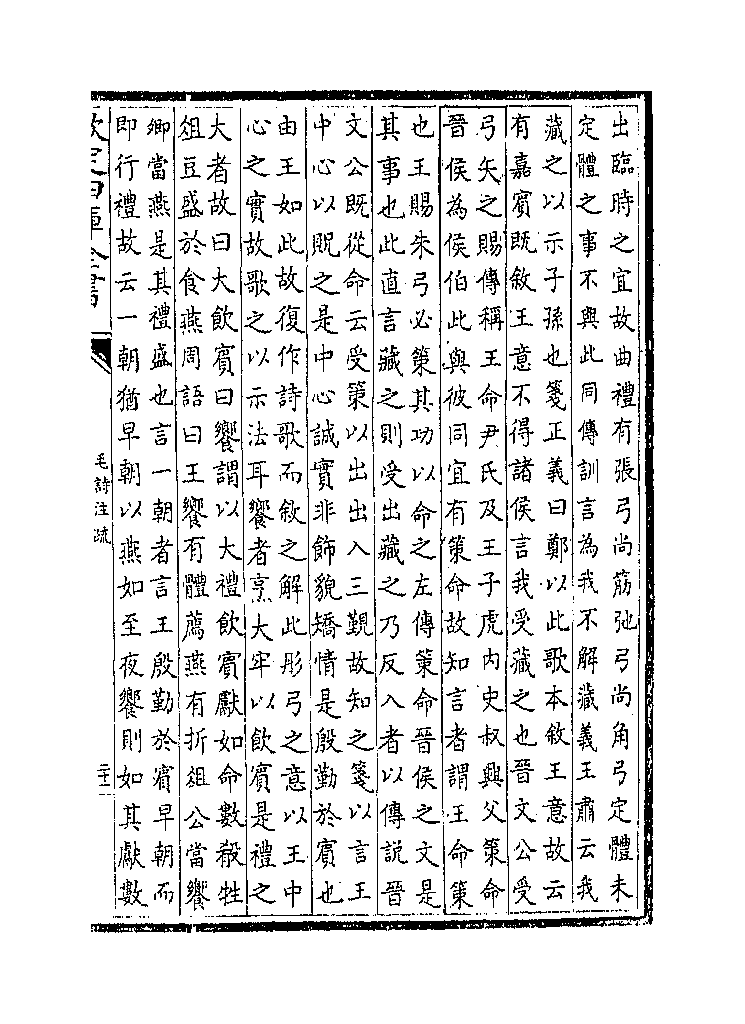 出臨時之宜故曲禮有張弓尚筋弛弓尚角弓定體未
定體之事不與此同傳訓言為我不解藏義王肅云我
藏之以示子孫也箋正義曰鄭以此歌本敘王意故云
有嘉賓既敘王意不得諸侯言我受藏之也晉文公受
弓矢之賜傳稱王命尹氏及王子虎内史叔興父策命
晉侯為侯伯此與彼同宜有策命故知言者謂王命策
也王賜朱弓必策其功以命之左傳策命晉侯之文是
其事也此直言藏之則受出藏之乃反入者以傳説晉
文公既從命云受策以出出入三覲故知之箋以言王
中心以貺之是中心誠實非飾貌矯情是殷勤於賓也
由王如此故復作詩歌而敘之解此彤弓之意以王中
心之實故歌之以示法耳饗者烹大牢以飲賓是禮之
大者故曰大飲賓曰饗謂以大禮飲賓獻如命數殽牲
俎豆盛於食燕周語曰王饗有體薦燕有折俎公當饗
卿當燕是其禮盛也言一朝者言王殷勤於賓早朝而
即行禮故云一朝猶早朝以燕如至夜饗則如其獻數
欽定四庫全書
毛詩注疏